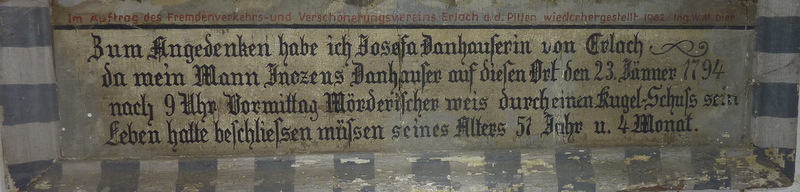 Im Auftrag des Fremdenverkehrs-und Verschönerungsvereins Erlach a.d. Pitten wiederhergestellt 1982 Ing. W.M.
Zum Angedenken habe ich Josefa Danhauserin von Erlach
da mein Mann Inozens Danhauser auf diesen Ort den 23. Jänner 1794
nach 9 Uhr Vormittag Mörderischer weis durch einen Kugel-Schuss sein
Leben hatte beschliessen müssen seines Alters 51 Jahr u. 4 Monat.